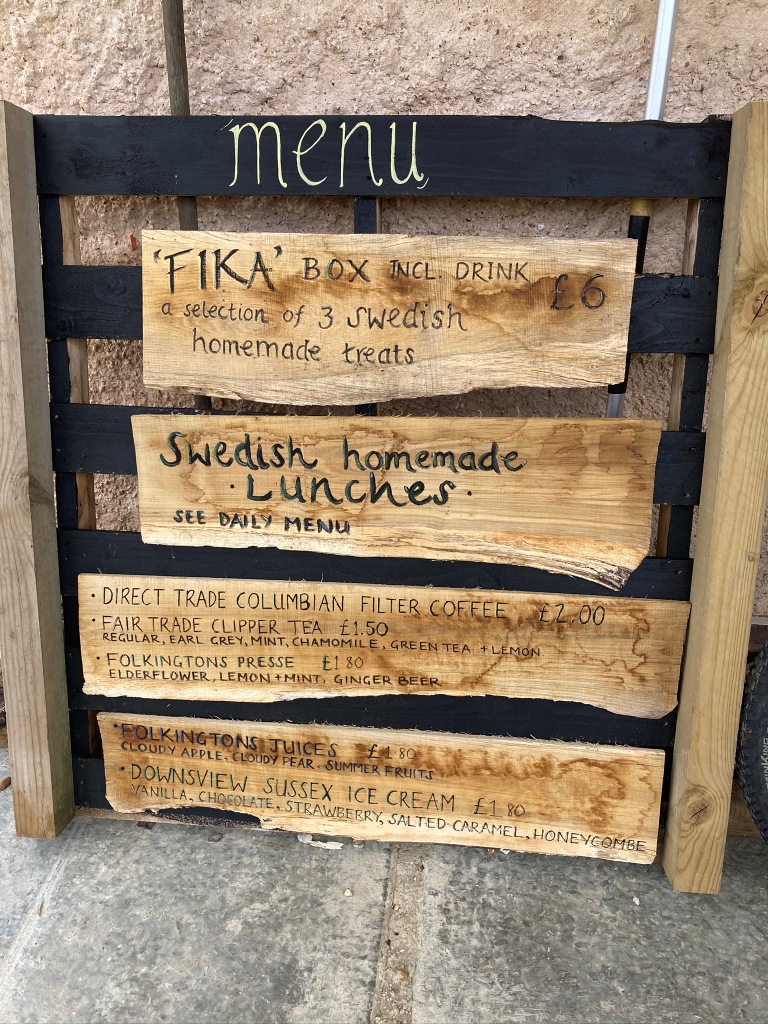 menu
'FIKA' BOX INCL. DRINK £6
a selection of 3 Swedish
homemade treats
Swedish homemade
·Lunches·
SEE DAILY MENU
· DIRECT TRADE COLUMBIAN FILTER COFFEE £2.00
· FAIR TRADE CLIPPER TEA £1.50
REGULAR, EARL GREY, MINT, CHAMOMILE, GREEN TEA + LEMON
· FOLKINGTONS PRESSE £1.80
ELDERFLOWER, LEMON + MINT, GINGER BEER
· FOLKINGTONS JUICES £1.80
CLOUDY APPLE, CLOUDY PEAR, SUMMER FRUITS
· DOWNSVIEW SUSSEX ICE CREAM £1.80
VANILLA, CHOCOLATE, STRAWBERRY, SALTED CARAMEL, HONEYCOMBE